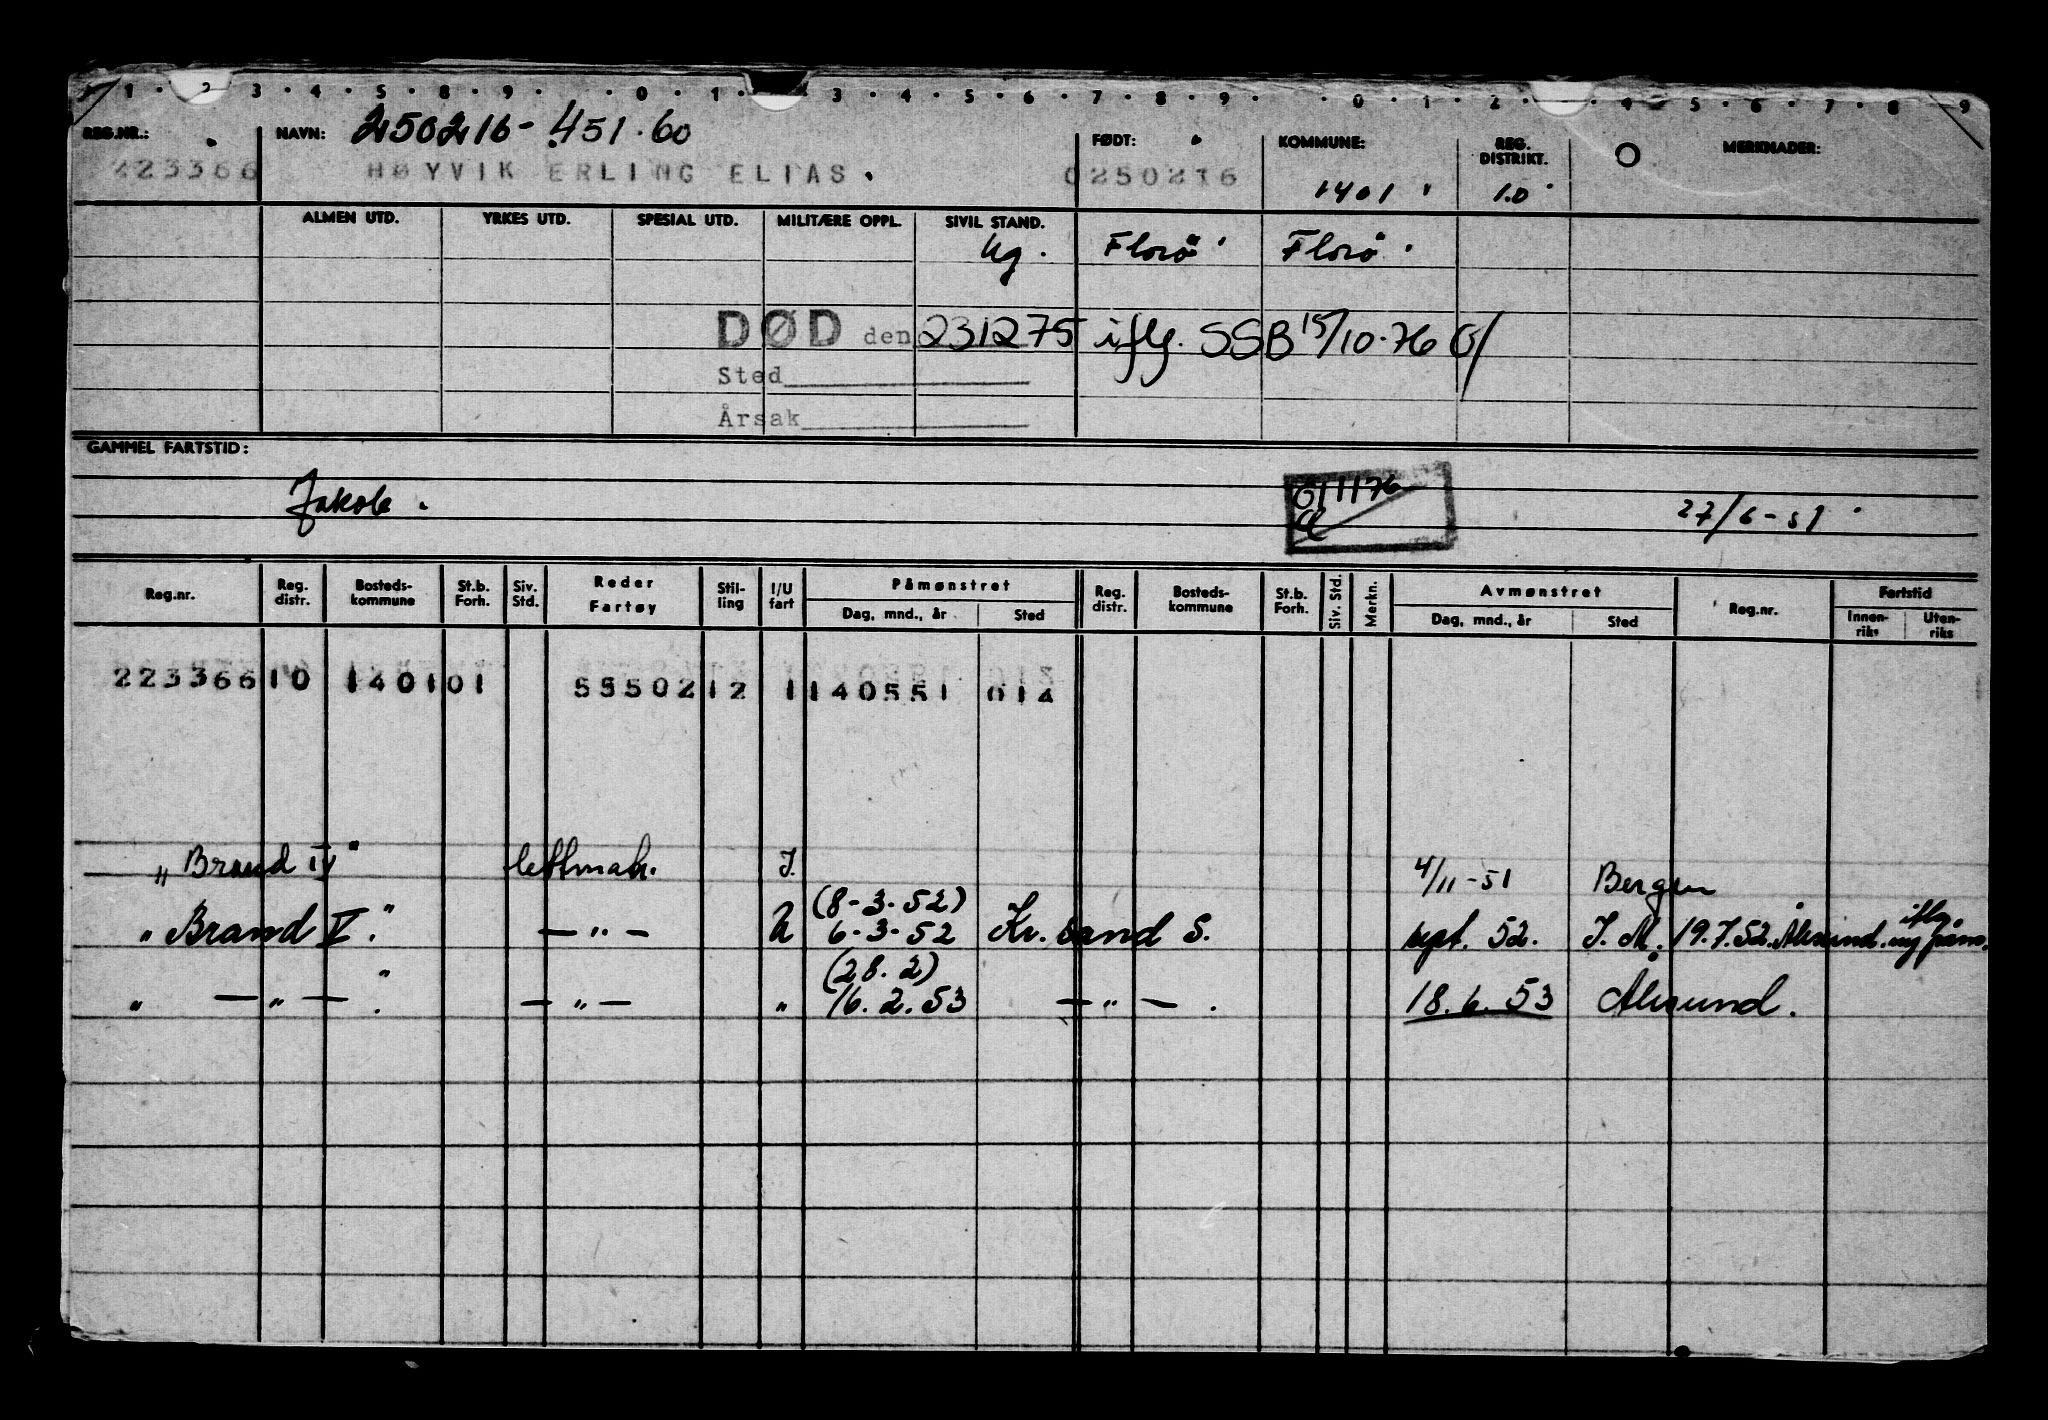 1 · 2 3 · 4 · 5 · 8 · 9 · · 0 · 1 · 3 · 4 · 5 · 6 · 7 · 8 · 9 · · 0 · 1 · 2 · 4 · 5 · 6 · 7 · 8 9
REG.NR.: NAVN: 250216-451.60 FØDT: KOMMUNE: REG. DISTRIKT. MERKNADER:
223366 HØYVIK ERLING ELIAS. 0250216 1401 10
ALMEN UTD. YRKES UTD. SPESIAL UTD. MILITÆRE OPPL. SIVIL STAND.
Ug. Florö Florö.
DØD den 231275 iflg. SSB 15/10-76
Sted
Årsak
GAMMEL FARTSTID:
Jakob. 27/6-51
Reg.nr. Reg. distr. Bosteds-kommune St.b. Forh. Siv. Std. Reder Fartøy Stil-ling I/U fart Påmønstret Dag, mnd., år Sted Reg. distr. Bosteds-kommune St.b. Forh. Siv. Std. Merkn. Avmønstret Dag, mnd., år Sted Reg.nr. Fartstid Innen-riks Uten-riks
223366 10 1401 01 55502 12 1 140551 014
"Brand IV" lettmatr. I. 4/11-51 Bergen
(8-3-52)
"Brand V." — " — U 6-3-52 Kr. sand S. sept. 52. I. M. 19.7.52. Ålesund. iflg. ny påm.
(28.2)
" — " — ." — " — " 16.2.53 — " — . 18.6.53 Ålesund.